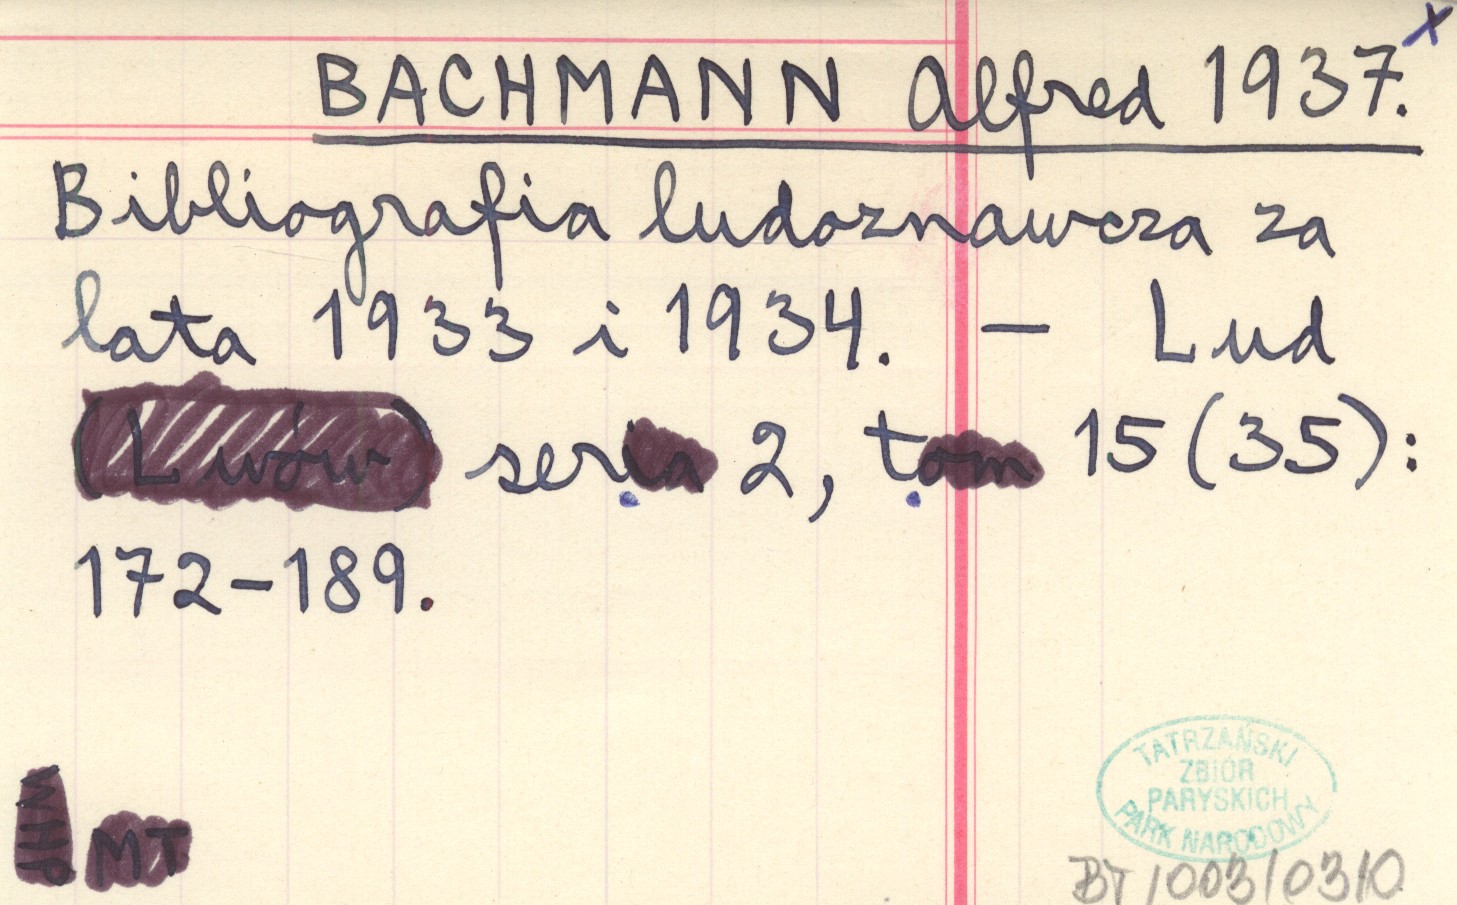 x
BACHMANN Alfred 1937.
Bibliografia ludoznawcza za
lata 1933 i 1934. — Lud
(Lwów) seria 2, tom 15 (35):
172-189.
MT
TATRZAŃSKI
ZBIÓR
PARYSKICH
PARK NARODOWY
BT/003/0310